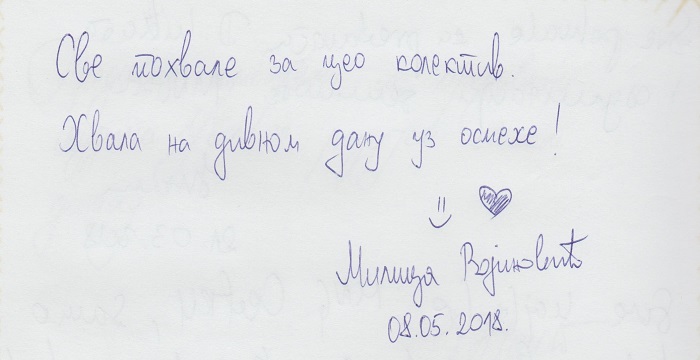 Све похвале за цео колектив.
Хвала на дивном дану уз осмехе!
Милица
08.05.2018.